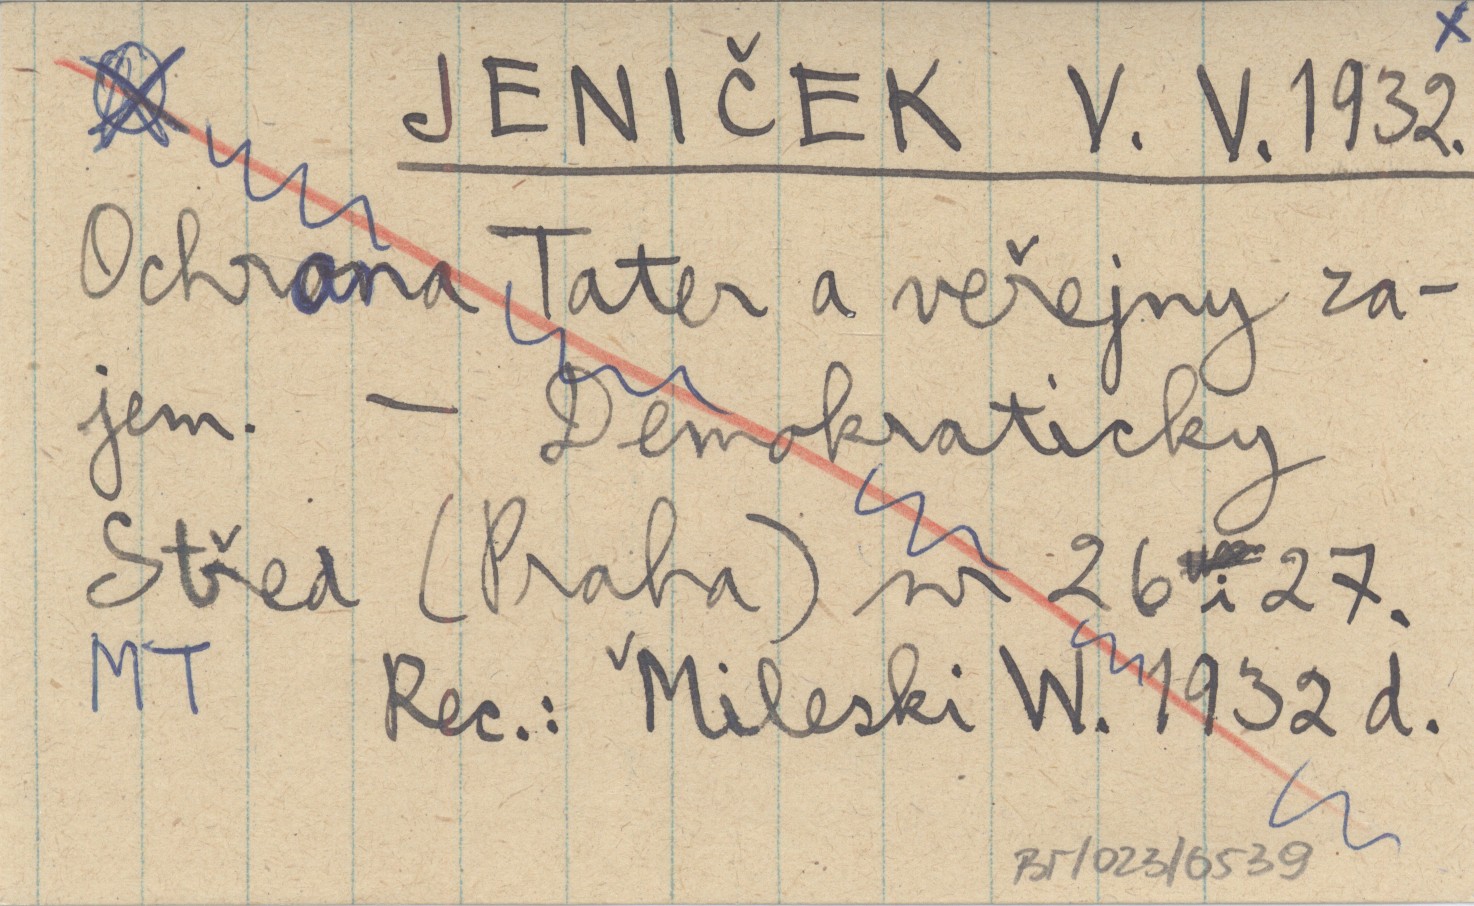 x
JENIČEK V. V. 1932.
Ochrana Tater a veřejny za-
jem. — Demokraticky
Střed (Praha) nr 26 i 27.
MT Rec.: Mileski W. 1932 d.
BT/023/6539